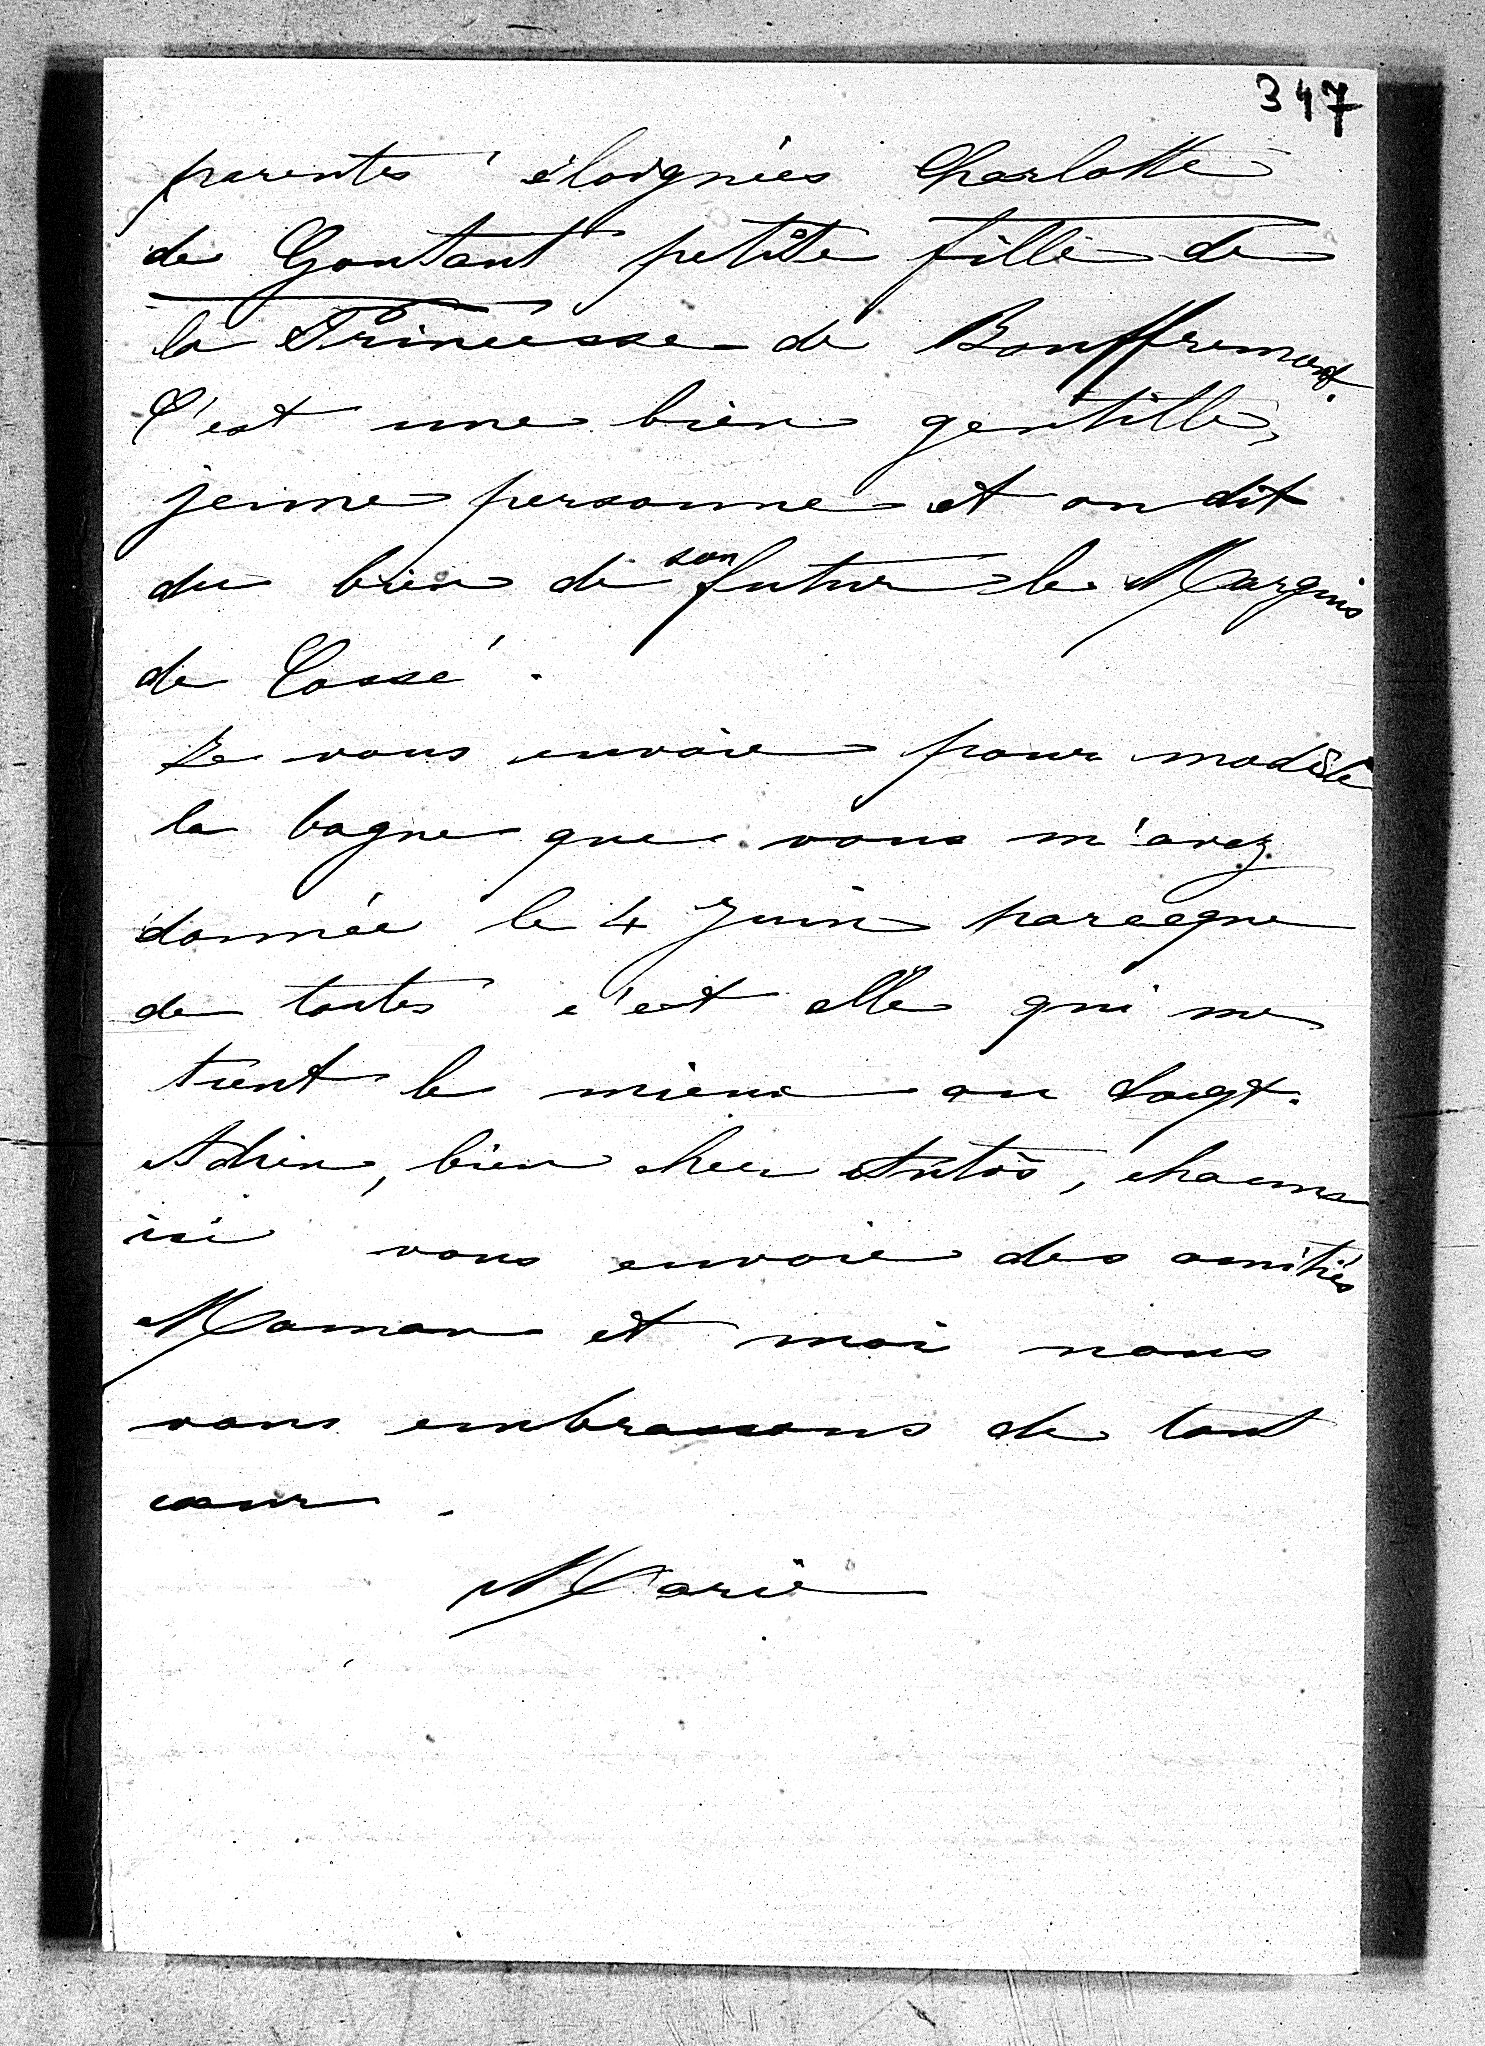 347
parentes éloignées Charlotte
de Gontaut petite fille de
la Princesse de Bauffremont.
C'est une bien gentille,
jeune personne et on dit
du bien de son futur le Marquis
de Cossé.
Je vous envoie pour modèle
la bague que vous m'avez
donnée le 4 Juin parceque
de toutes c'est elle qui me
tient le mieux au doigt.
Adieu, bien cher Antos, chacun
ici vous envoie des amitiés
Maman et moi nous
vous embrassons de tout
cœur.
Marie